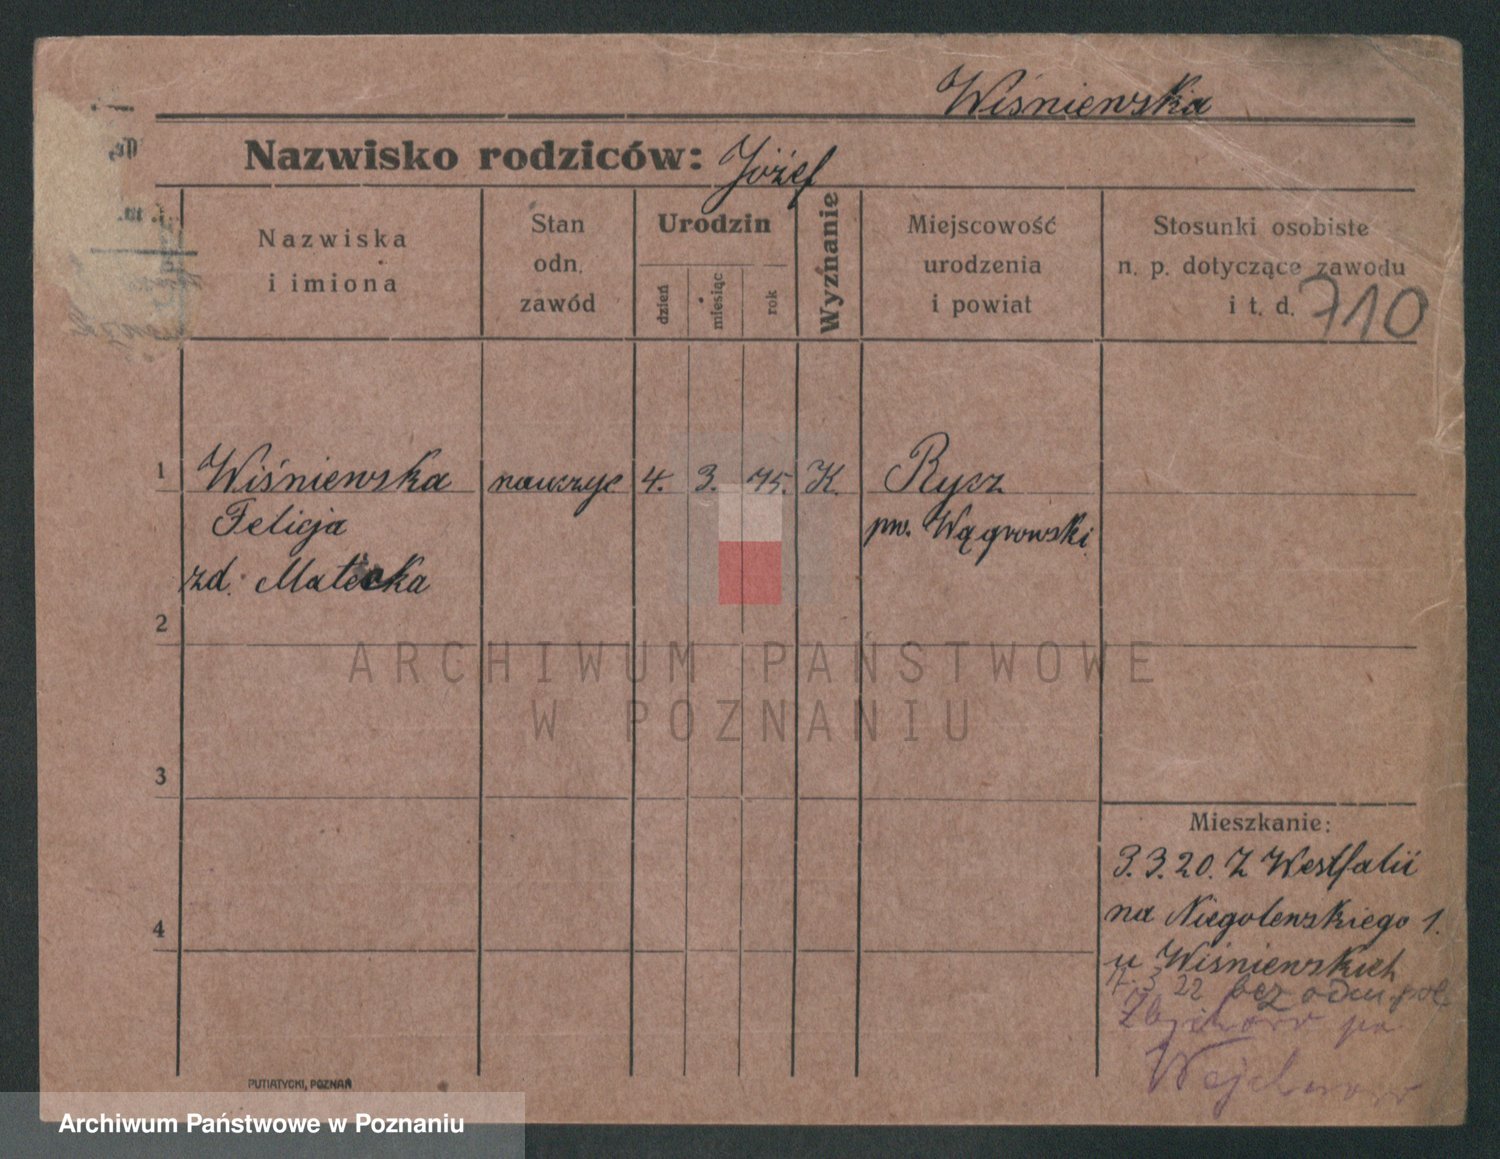 Wiśniewska
Nazwisko rodziców: Józef
Nazwiska
i imiona
Stan
odn.
zawód
Urodzin
dzień
miesiąc
rok
Wyznanie
Miejscowość
urodzenia
i powiat
Stosunki osobiste
n. p. dotyczące zawodu
i t. d.
710
1
Wiśniewska
Felicja
zd. Matecka
nauczyc
4. 3. 75.
K.
Rycz
pw. Wągrowski
2
ARCHIWUM PAŃSTWOWE
W POZNANIU
3
4
Mieszkanie:
3.3.20. Z Westfalii
na Niegolewskiego 1.
u Wiśniewskich
3 22 bez odm. pol.
Wejherowo
PUTIATYCKI, POZNAŃ
Archiwum Państwowe w Poznaniu